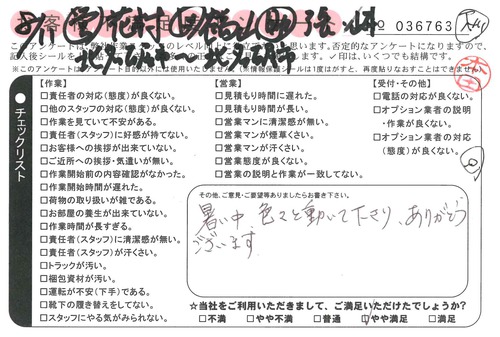 036763
このアンケートは、弊社作業スタッフのレベル向上
います。否定的なアンケートになりますので、
記入後シールを
✓印は、いくつでも結構です。
※このアンケートは、アンケート目的以外には使用いたしません!(※情報保護シールは1度はがすと、再度貼りなおすことはできません)
チェックリスト
【作業】
□責任者の対応(態度)が良くない。
□他のスタッフの対応(態度)が良くない。
□作業を見ていて不安がある。
□責任者(スタッフ)に好感が持てない。
□お客様への挨拶が出来ていない。
□ご近所への挨拶・気遣いが無い。
□作業開始前の内容確認がなかった。
□作業開始時間が遅れた。
□荷物の取り扱いが雑である。
□お部屋の養生が出来ていない。
□作業時間が長すぎる。
□責任者(スタッフ)に清潔感が無い。
□責任者(スタッフ)が汗くさい。
□トラックが汚い。
□梱包資材が汚い。
□運転が不安(下手)である。
□靴下の履き替えをしてない。
□スタッフにやる気がみられない。
【営業】
□見積もり時間に遅れた。
□見積もり時間が長い。
□営業マンに清潔感が無い。
□営業マンが煙草くさい。
□営業マンが汗くさい。
□営業態度が良くない。
□営業の説明と作業が一致してない。
【受付・その他】
□電話の対応が良くない。
□オプション業者の説明
・作業が良くない。
□オプション業者の対応
(態度)が良くない。
その他、ご意見・ご要望等ありましたらお書き下さい。
暑い中、色々と動いて下さり、ありがとう
ございます
☆当社をご利用いただきまして、ご満足いただけたでしょうか?
□不満 □やや不満 □普通 □やや満足 □満足